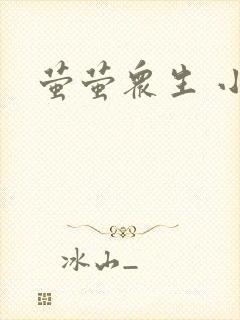 萤萤众生 小
冰山_